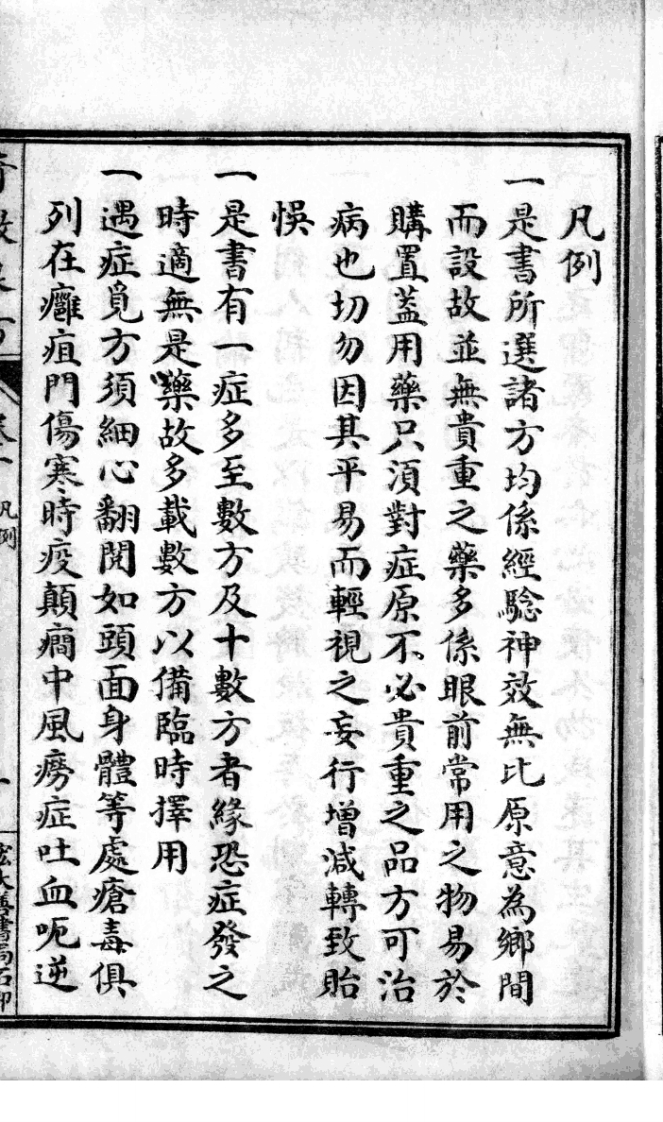 凡例
一是書所選諸方均係經驗神效無比原意為鄉間
而設故並無貴重之藥多係眼前常用之物易於
購置蓋用藥只須對症原不必貴重之品方可治
病也切勿因其平易而輕視之妄行增減轉致貽
悞
一是書有一症多至數方及十數方者緣恐症發之
時適無是藥故多載數方以備臨時擇用
一遇症覓方須細心翻閱如頭面身體等處瘡毒俱
列在癰疽門傷寒時疫顛癇中風癆症吐血呃逆
凡例
善書局石印